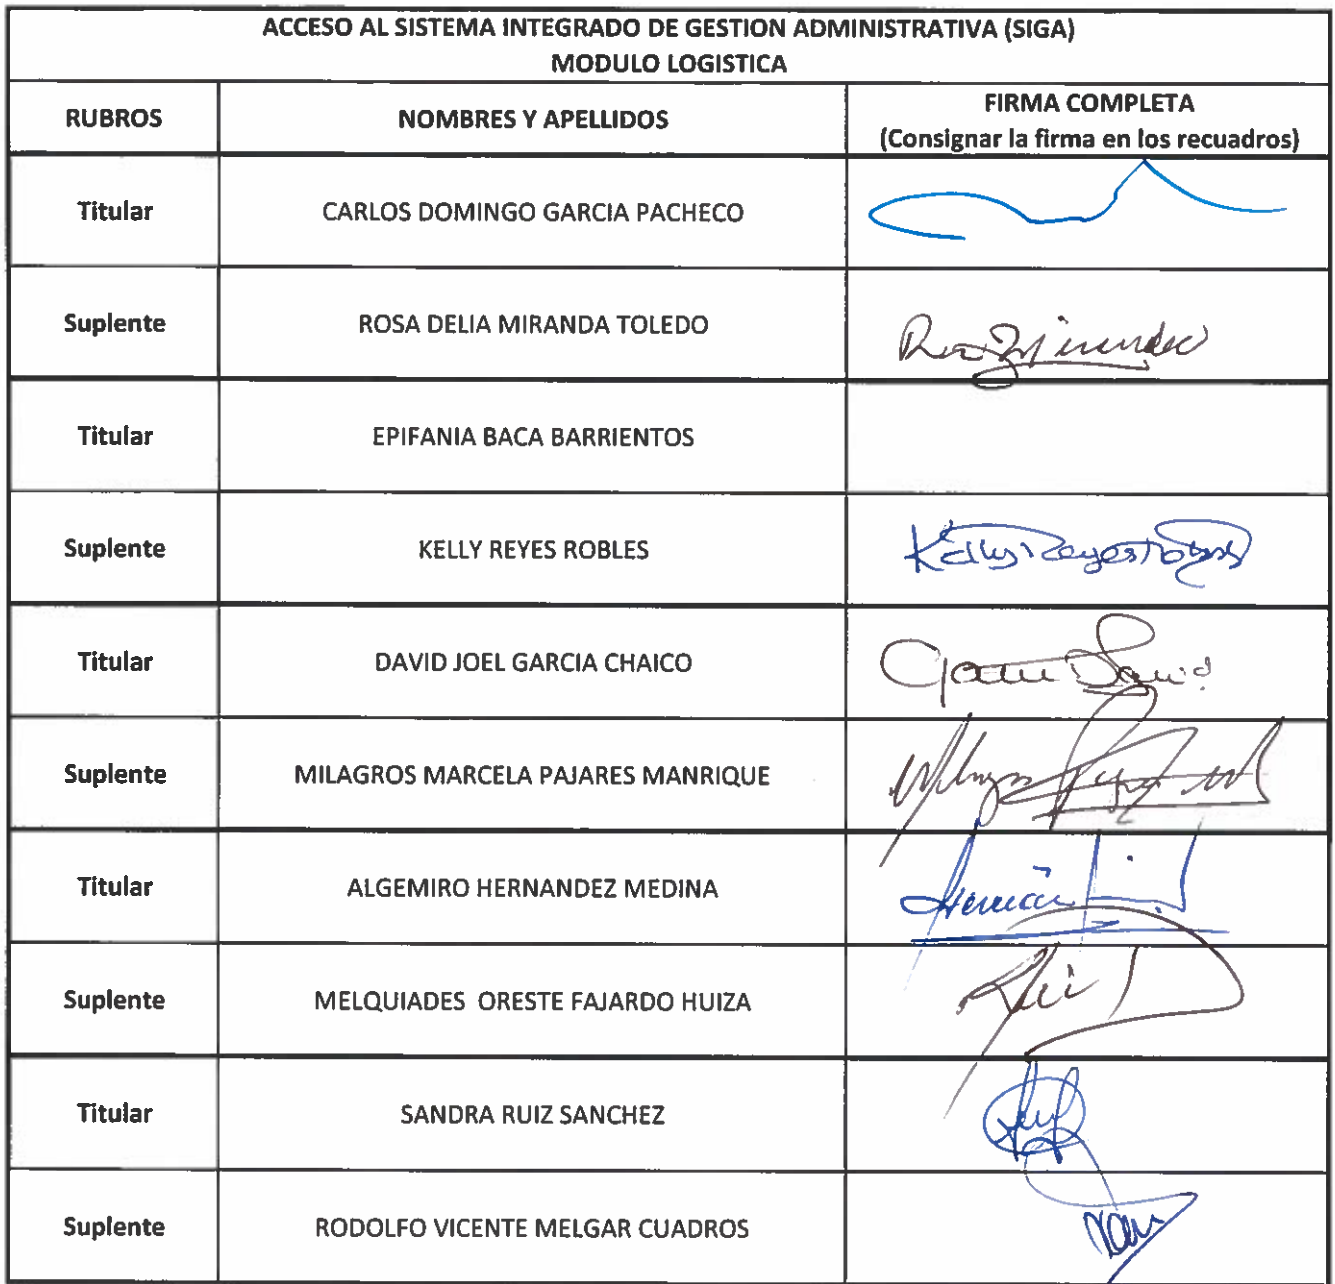 ACCESO AL SISTEMA INTEGRADO DE GESTION ADMINISTRATIVA (SIGA)
MODULO LOGISTICA
RUBROS NOMBRES Y APELLIDOS FIRMA COMPLETA
(Consignar la firma en los recuadros)
Titular CARLOS DOMINGO GARCIA PACHECO
Suplente ROSA DELIA MIRANDA TOLEDO
Titular EPIFANIA BACA BARRIENTOS
Suplente KELLY REYES ROBLES Kelly Reyes Robles
Titular DAVID JOEL GARCIA CHAICO
Suplente MILAGROS MARCELA PAJARES MANRIQUE
Titular ALGEMIRO HERNANDEZ MEDINA
Suplente MELQUIADES ORESTE FAJARDO HUIZA
Titular SANDRA RUIZ SANCHEZ
Suplente RODOLFO VICENTE MELGAR CUADROS